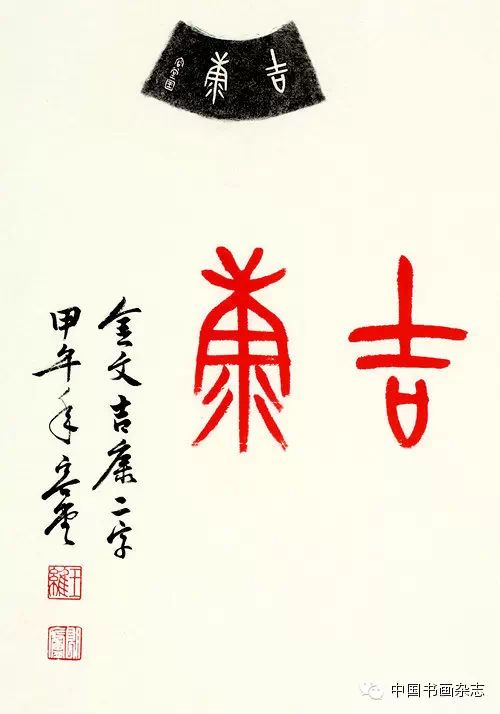 吉康
吉康
金文吉康二字
甲午年
中国书画杂志